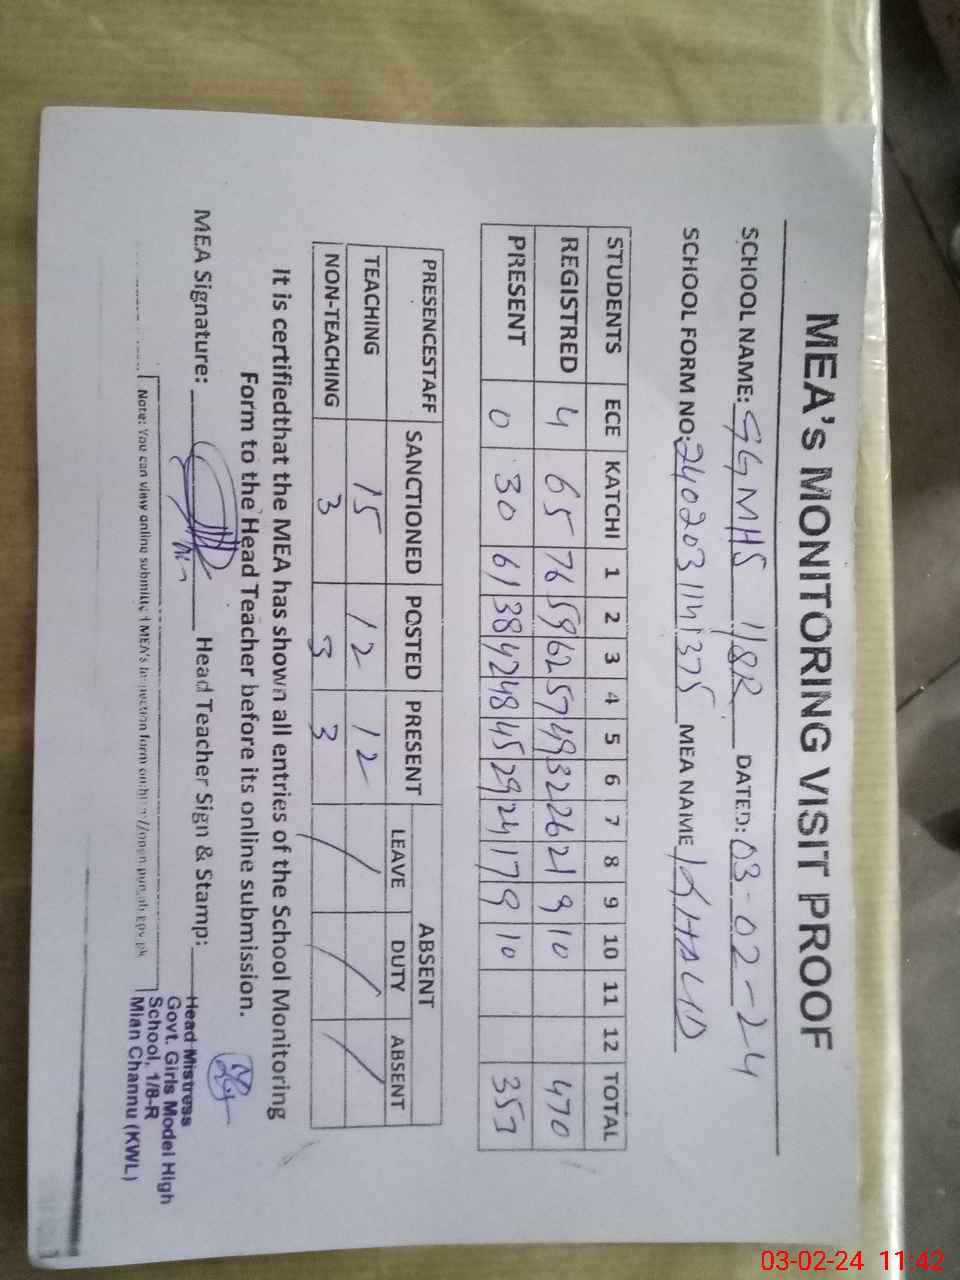 MEA's MONITORING VISIT PROOF
SCHOOL NAME: GGMHS 1/8R DATED: 03-02-24
SCHOOL FORM NO: MEA NAME KHALID
STUDENTS ECE KATCHI 1 2 3 4 5 6 7 8 9 10 11 12 TOTAL
REGISTRED 4 65 76 59 62 57 49 32 26 21 9 10 470
PRESENT 0 30 61 38 42 48 45 29 24 17 9 10 353
PRESENCESTAFF SANCTIONED POSTED PRESENT ABSENT
LEAVE DUTY ABSENT
TEACHING 15 12 12 / / /
NON-TEACHING 3 3 3
It is certifiedthat the MEA has shown all entries of the School Monitoring
Form to the Head Teacher before its online submission.
MEA Signature: Head Teacher Sign & Stamp:
Head Mistress
Govt. Girls Model High
School, 1/8-R
Mian Channu (KWL)
Note: You can view online submitted MEA's Inspection form on:
03-02-24 11:42